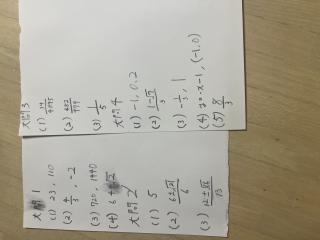 大問 1
(1) 23, 110
(2) 4/3, -2
(3) 720, 1440
(4) 6
大問 2
(1) 5
(2) 6±√21/6
(3) 12±√6/13
大問 3
(1)
(2)
(3) 1/5
大問 4
(1) -1, 0, 2
(2) 1-√7/3
(3) -1/3, 1
(4) (-1, 0)
(5) 8/3